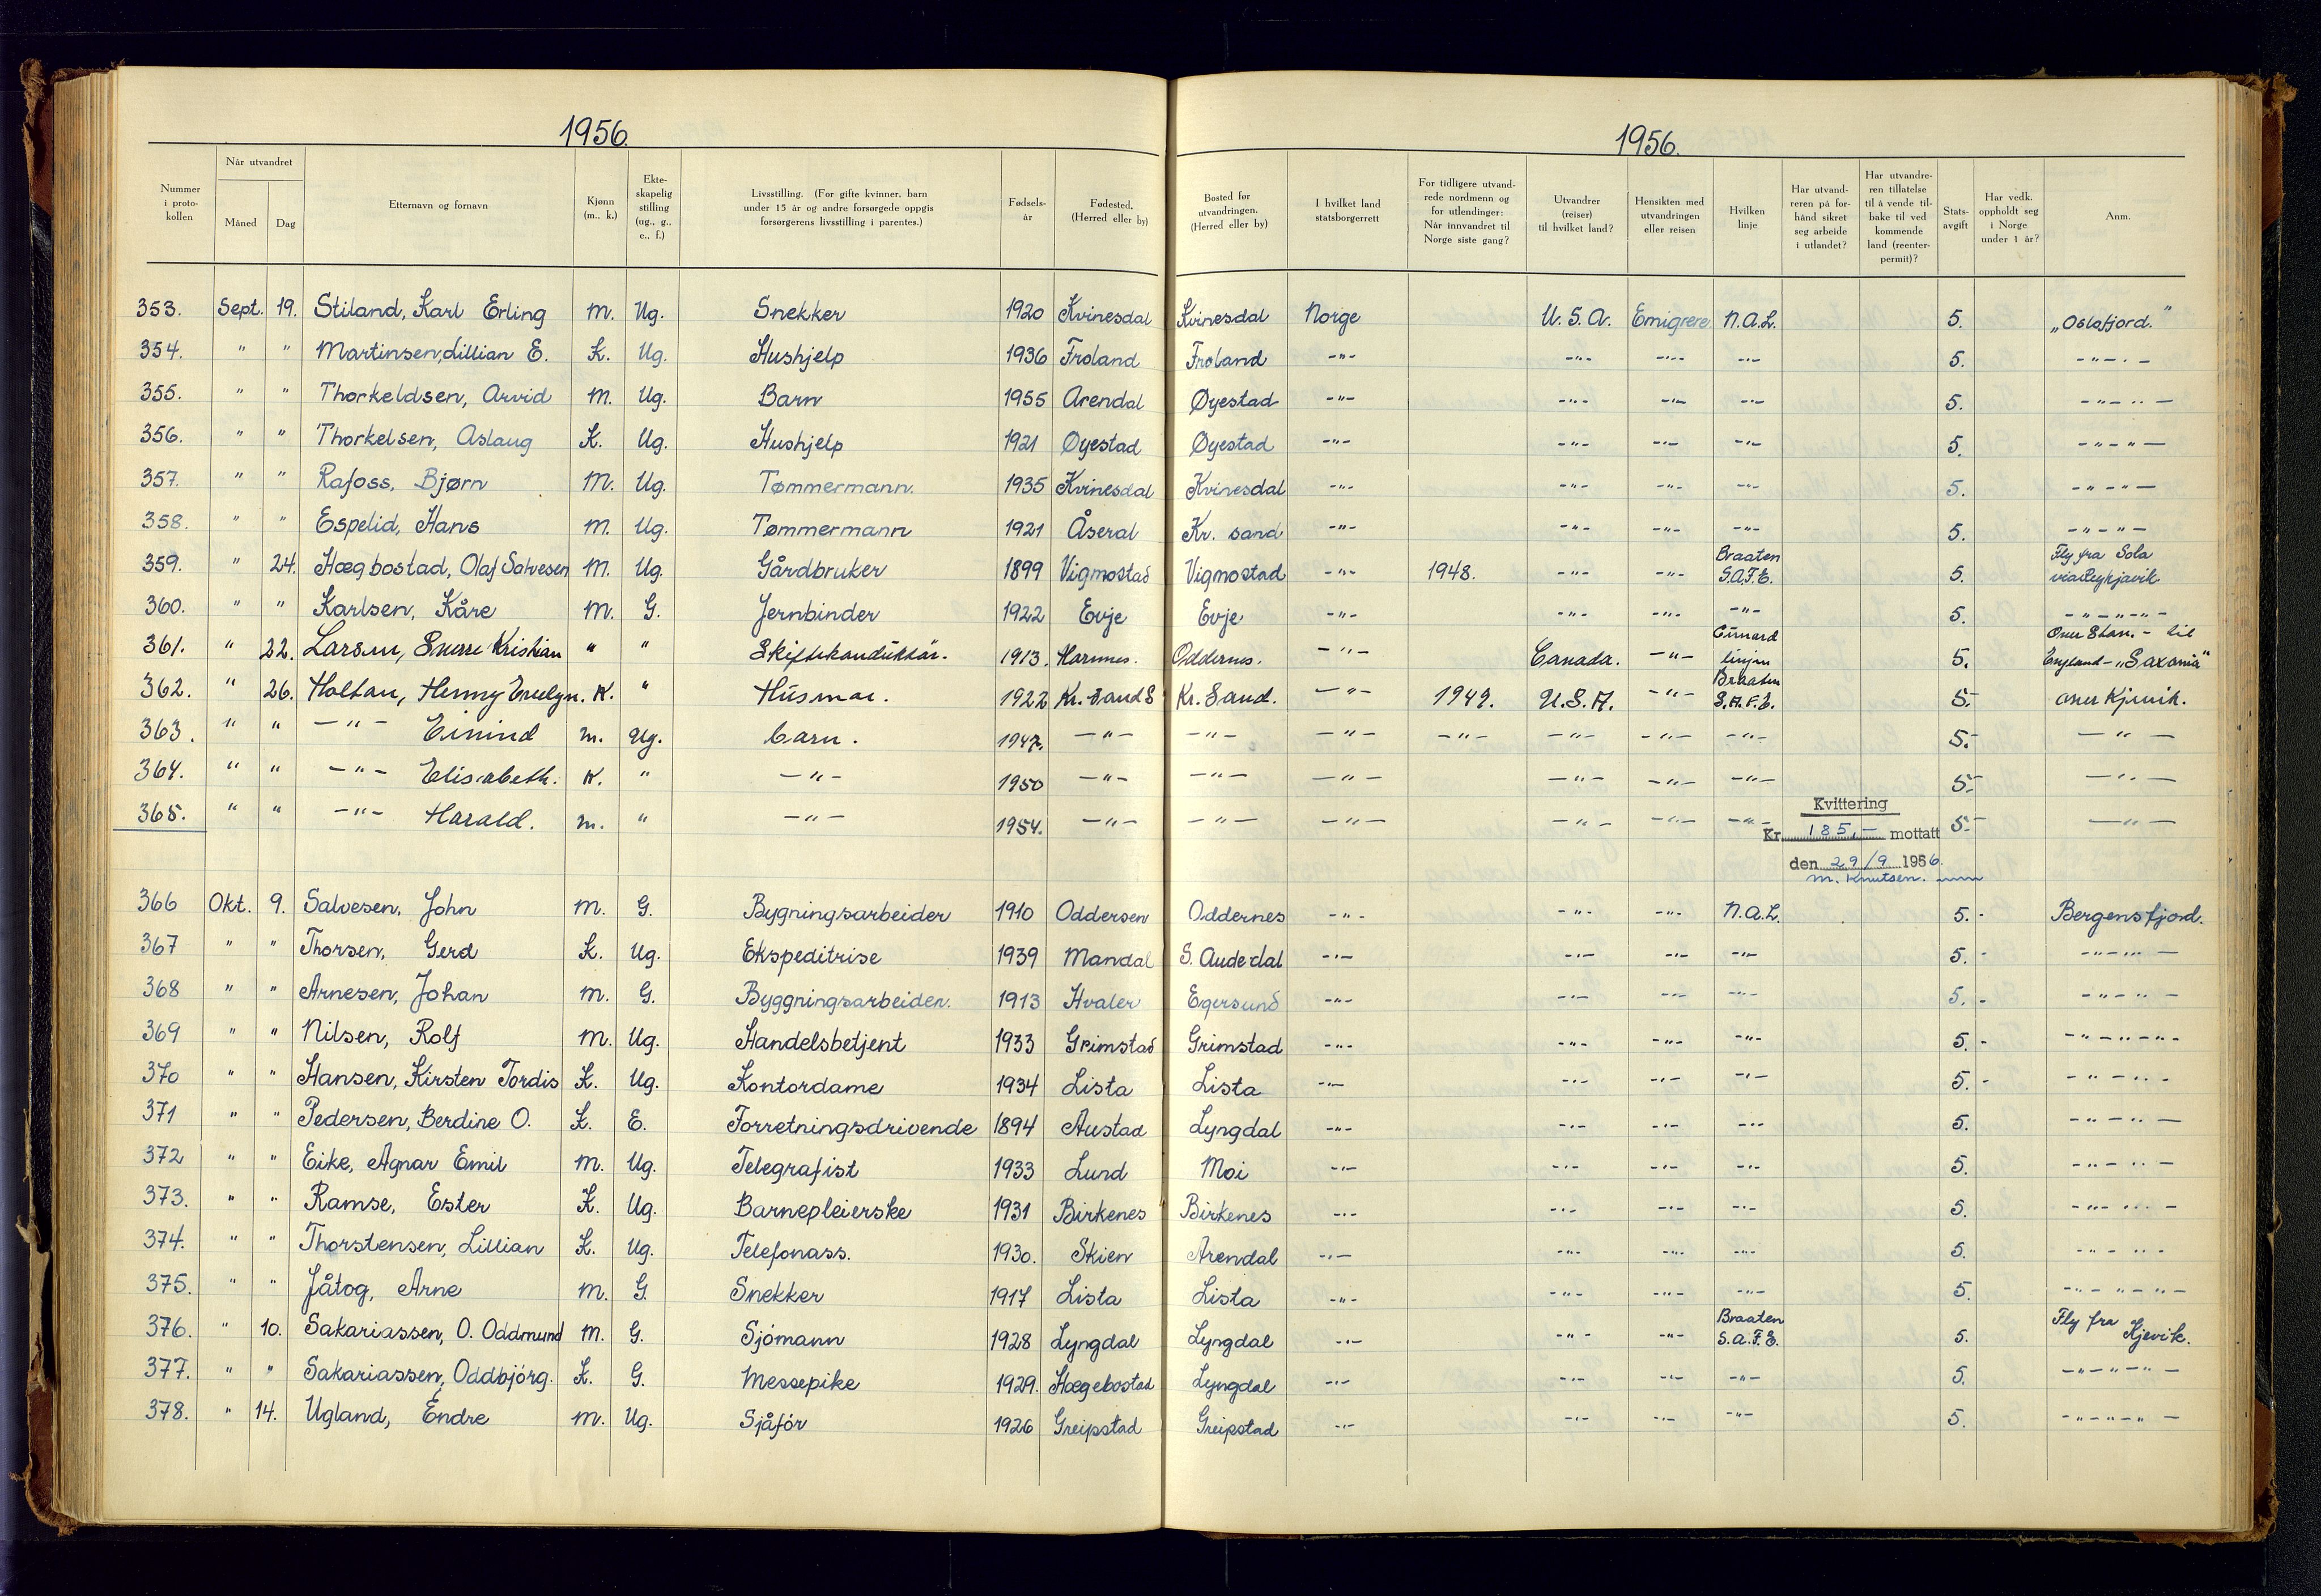 1956.
1956.
Nummer i proto-kollen | Når utvandret Måned Dag | Etternavn og fornavn | Kjønn (m., k.) | Ekte-skapelig stilling (ug., g., e., f.) | Livsstilling. (For gifte kvinner, barn under 15 år og andre forsørgede oppgis forsørgerens livsstilling i parentes.) | Fødsels-år | Fødested. (Herred eller by) | Bosted før utvandringen. (Herred eller by) | I hvilket land statsborgerrett | For tidligere utvand-rede nordmenn og for utlendinger: Når innvandret til Norge siste gang? | Utvandrer (reiser) til hvilket land? | Hensikten med utvandringen eller reisen | Hvilken linje | Har utvand-reren på for-hånd sikret seg arbeide i utlandet? | Har utvandre-ren tillatelse til å vende til-bake til ved kommende land (reenter-permit)? | Stats-avgift | Har vedk. oppholdt seg i Norge under 1 år? | Anm.
353. Sept. 19. Stiland, Karl Erling m. Ug. Snekker 1920 Kvinesdal Kvinesdal Norge U.S.A. Emigrere. N.A.L. 5. „Oslofjord."
354. " " Martinsen, Lillian E. K. Ug. Hushjelp 1936 Froland Froland -"- -"- -"- -"- 5. -"-"-
355. " " Thorkeldsen, Arvid m. Ug. Barn 1955 Arendal Øyestad -"- -"- -"- -"- 5. -"-"-
356. " " Thorkelsen, Aslaug K. Ug. Hushjelp 1921 Øyestad Øyestad -"- -"- -"- -"- 5. -"-"-
357. " " Rafoss, Bjørn m. Ug. Tømmermann. 1935 Kvinesdal Kvinesdal -"- -"- -"- -"- 5. -"-"-
358. " " Espelid, Hans m. Ug. Tømmermann 1921 Åseral Kr. sand -"- -"- -"- -"- 5. -"-"-
359. " 24. Hægbostad, Olaf Salvesen m. Ug. Gårdbruker 1899 Vigmostad Vigmostad -"- 1948. -"- -"- Braaten S.A.F.E. 5. Fly fra Sola via Reykjavik
360. " " Karlsen, Kåre m. G. Jernbinder 1922 Evje Evje -"- -"- -"- -"- 5. -"-"-"-
361. " 22. Larsen, Sverre Kristian " " Skiftekonduktør. 1913. Oddernes. -"- Canada. -"- Cunard linjen 5. over Stav. - til England - „Saxonia"
362. " 26. Holtan, Henny Evelyn. K. " Husmor. 1922 Kr.sand S Kr. Sand. -"- 1949. U.S.A. -"- Braaten S.A.F.E. 5.- over Kjevik.
363. " " -"- Eivind m. Ug. barn. 1947. -"- -"- -"- -"- -"- -"- -"- 5.- -"-
364. " " -"- Elisabeth. K. " -"- 1950 -"- -"- -"- -"- -"- -"- 5.- -"-
365. " " -"- Harald. m. " -"- 1954. -"- -"- -"- -"- -"- -"- 5.- -"-
Kvittering
Kr. 185,- mottatt
den 29/9 1956.
M. Knutsen.
366 Okt. 9. Salvesen, John m. G. Bygningsarbeider 1910 Oddersen Oddernes -"- -"- -"- N.A.L. 5.- Bergensfjord.
367 " " Thorsen, Gerd K. Ug. Ekspeditrise 1939 Mandal S. Audedal -"- -"- -"- -"- 5.- -"-"-
368 " " Arnesen, Johan m. G. Byggningsarbeider. 1913 Hvaler Egersund -"- -"- -"- -"- 5.- -"-"-
369 " " Nilsen, Rolf m. Ug. Handelsbetjent 1933 Grimstad Grimstad -"- -"- -"- -"- 5.- -"-"-"-
370 " " Hansen, Kirsten Tordis K. Ug. Kontordame 1934 Lista Lista -"- -"- -"- -"- 5.- -"-"-
371 " " Pedersen, Berdine O. K. E. Forretningsdrivende 1894 Austad Lyngdal -"- -"- -"- -"- 5. -"-"-
372 " " Eike, Agnar Emil m. Ug. Telegrafist 1933 Lund Moi -"- -"- -"- -"- 5. -"-"-
373. " " Ramse, Ester K. Ug. Barnepleierske 1931 Birkenes Birkenes -"- -"- -"- -"- 5. -"-"-
374. " " Thorstensen, Lillian K. Ug. Telefonass. 1930. Skien Arendal -"- -"- -"- -"- 5. -"-"-
375. " " Jåtog, Arne m. G. Snekker 1917 Lista Lista -"- -"- -"- -"- 5. -"-"-"-
376. " 10. Sakariassen, O. Oddmund m. G. Sjömann 1928 Lyngdal Lyngdal -"- -"- -"- Braaten S.A.F.E. 5. Fly fra Kjevik.
377. " " Sakariassen, Oddbjörg. K. G. Messepike 1929. Hægebostad Lyngdal -"- -"- -"- -"- 5. -"-"-"-
378. " 14. Ugland, Endre m. Ug. Sjåför 1926 Greipstad Greipstad -"- -"- -"- -"- 5. -"-"-"-